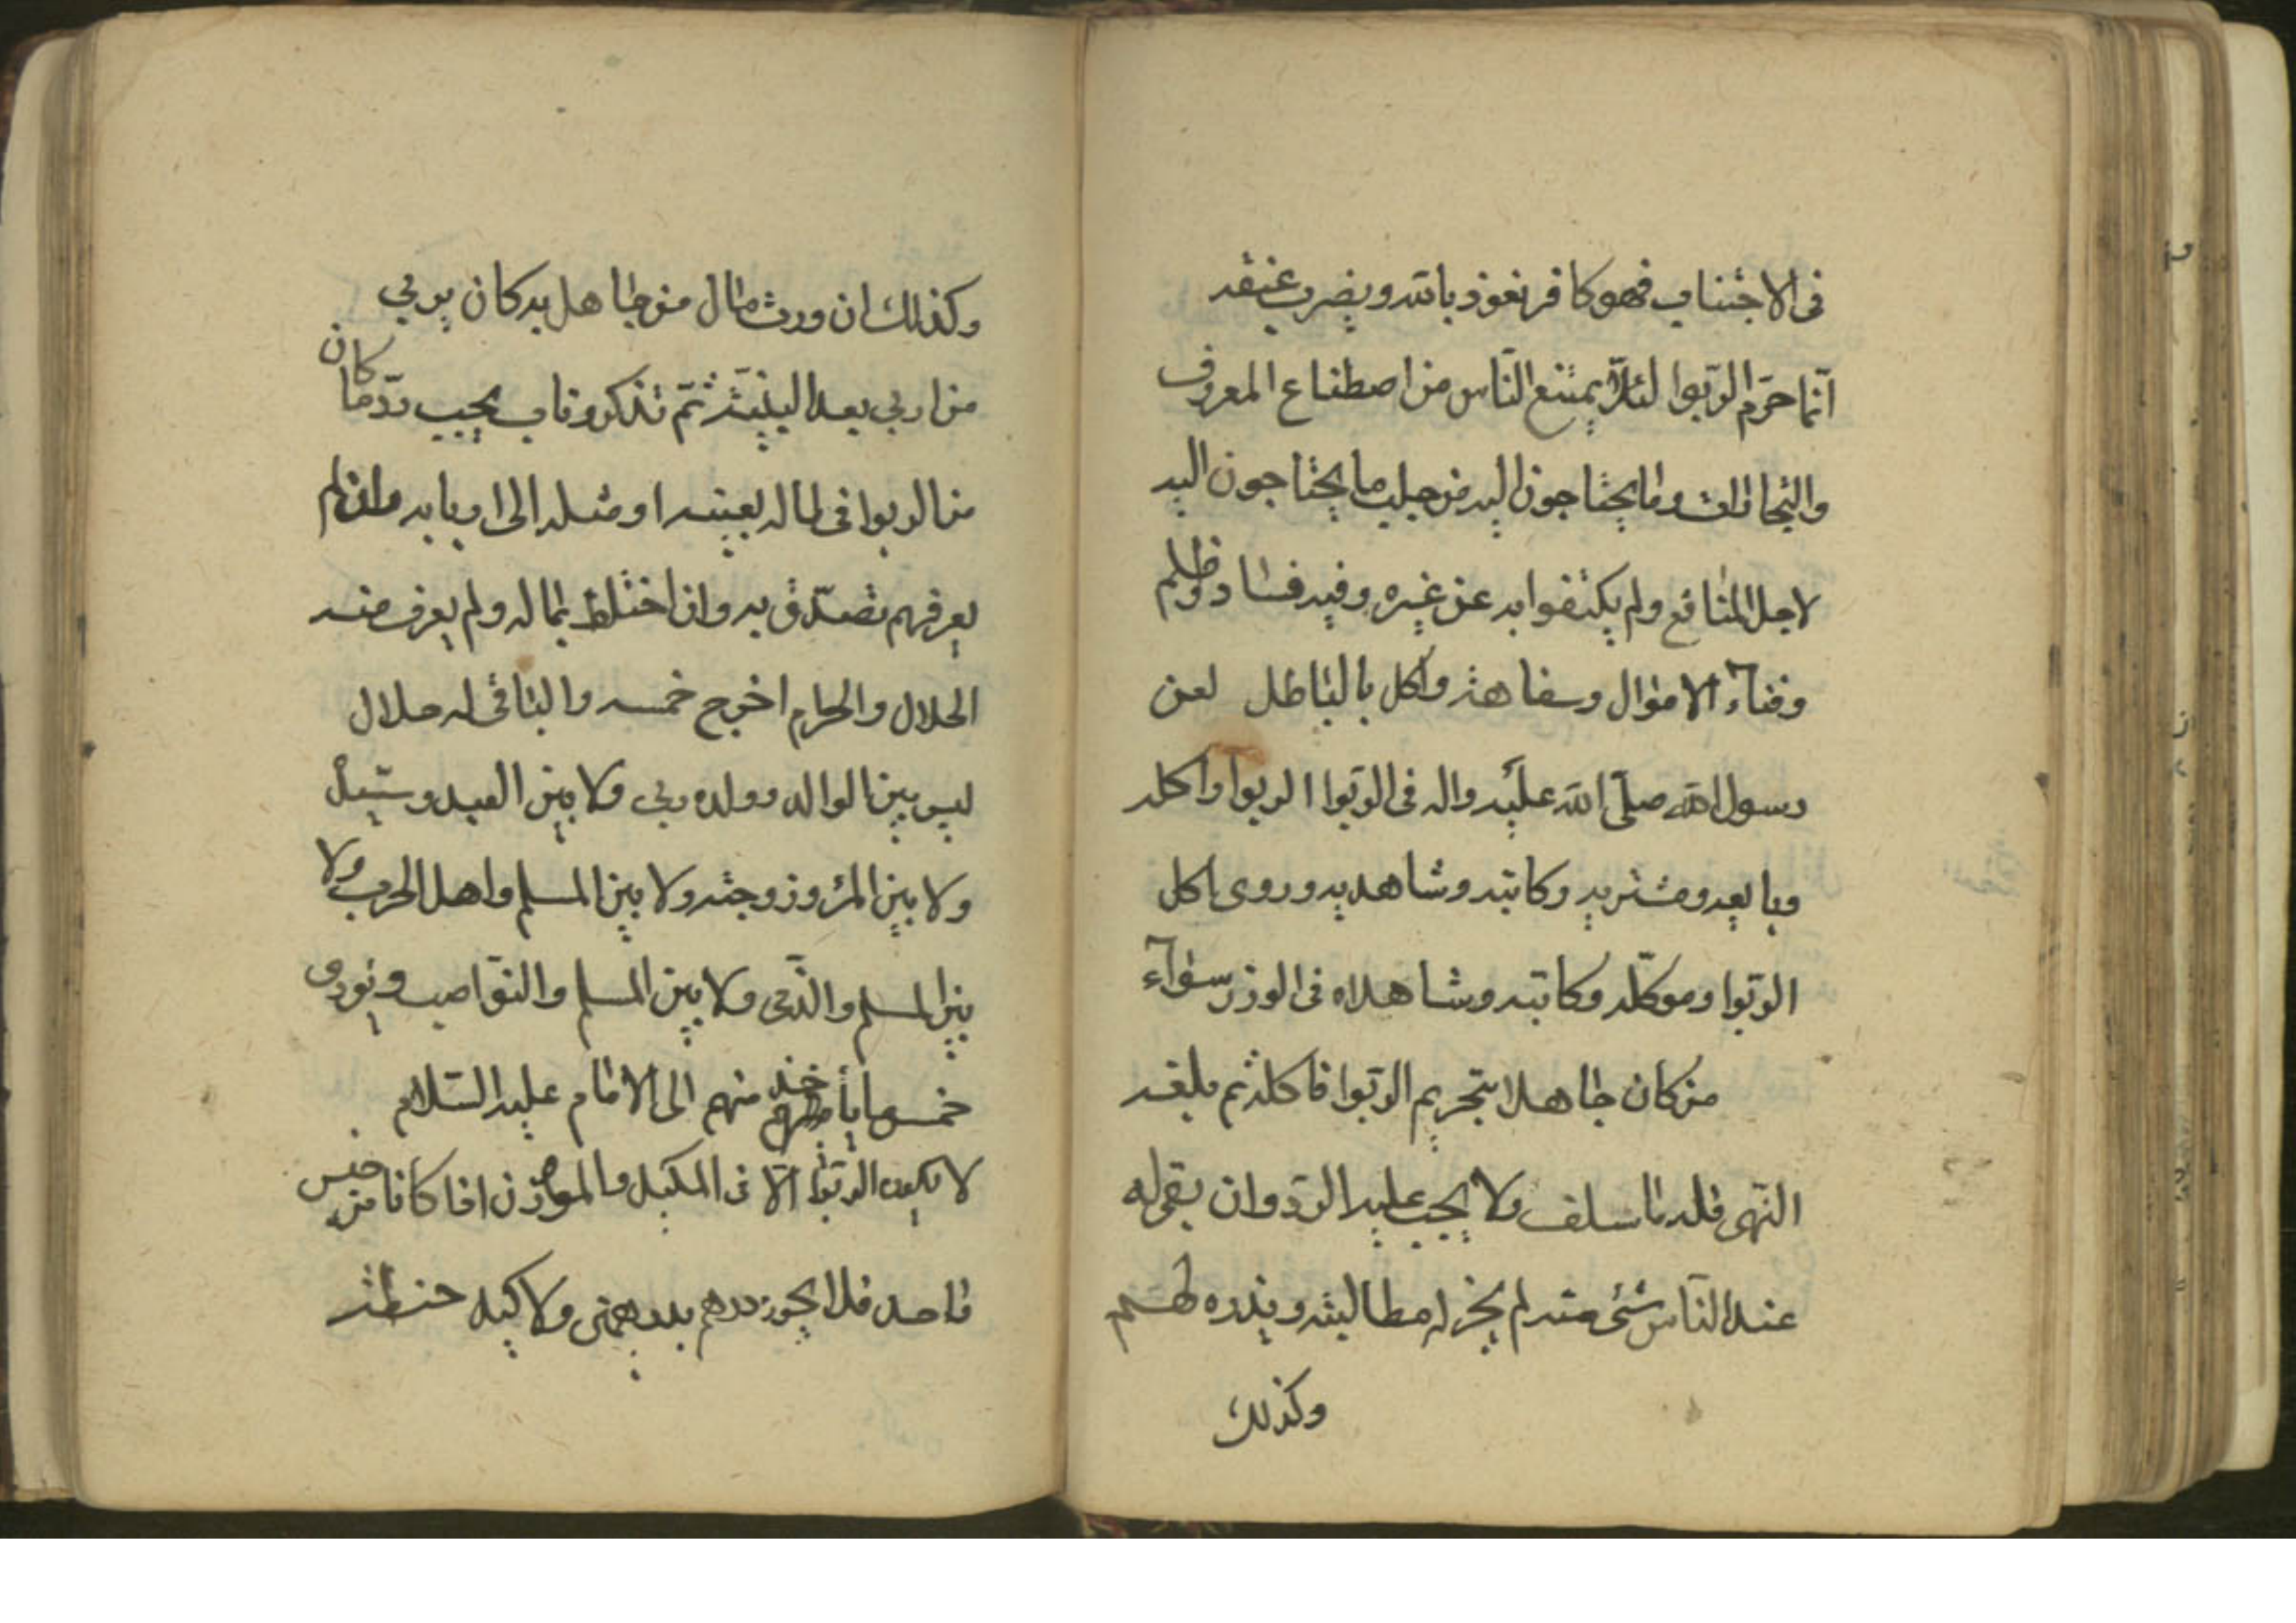 فى الاجتناب فهو كافر نعوذ بالله ويضرب عنقه
انّما حرّم الربّوا لئلّا يمتنع النّاس من اصطناع المعروف
والتجارات وما يحتاجون اليه من جلب ما يحتاجون اليه
لاجل المنافع ولم يكتفوا به عن غيره وفيه فساد وظلم
وفناء الاموال وسفاهة واكل بالباطل لعن
رسول الله صلّى الله عليه واله فى الربّوا الربوا واكله
وبايعه ومشتريه وكاتبه وشاهديه وروى اكل
الربّوا وموكّله وكاتبه وشاهداه فى الوزر سوآء
من كان جاهلا بتحريم الربّوا فاكله ثم بلغه
النّهى فله ما سلف ولا يجب عليه الردّ وان بقى له
عند النّاس شئ منه لم يجز له مطالبته ويذره لهم
وكذلك
وكذلك ان ورث مال من جاهل به كان يربي
من اربي بعد البيّنة ثمّ تذكر وتاب يجب ردّ ما كان
من الربوا فى ماله بعينه او مثله الى اربابه وان لم
يعرفهم تصدّق به وان اختلط بماله ولم يعرف منه
الحلال والحرام اخرج خمسه والباقى له حلال
ليس بين الوالد وولده ربي ولا بين العبد وسيّده
ولا بين المرء وزوجته ولا بين المسلم واهل الحرب ولا
بين المسلم والذّمى ولا بين المسلم والنوّاصب ويؤدى
خمس ما ياخذ منهم الى الامام عليه السّلام
لا يكون الربّوا الّا فى المكيل والموزون اذا كانا من جنس
واحد فلا يجوز درهم بدرهمين ولا كيله حنطة